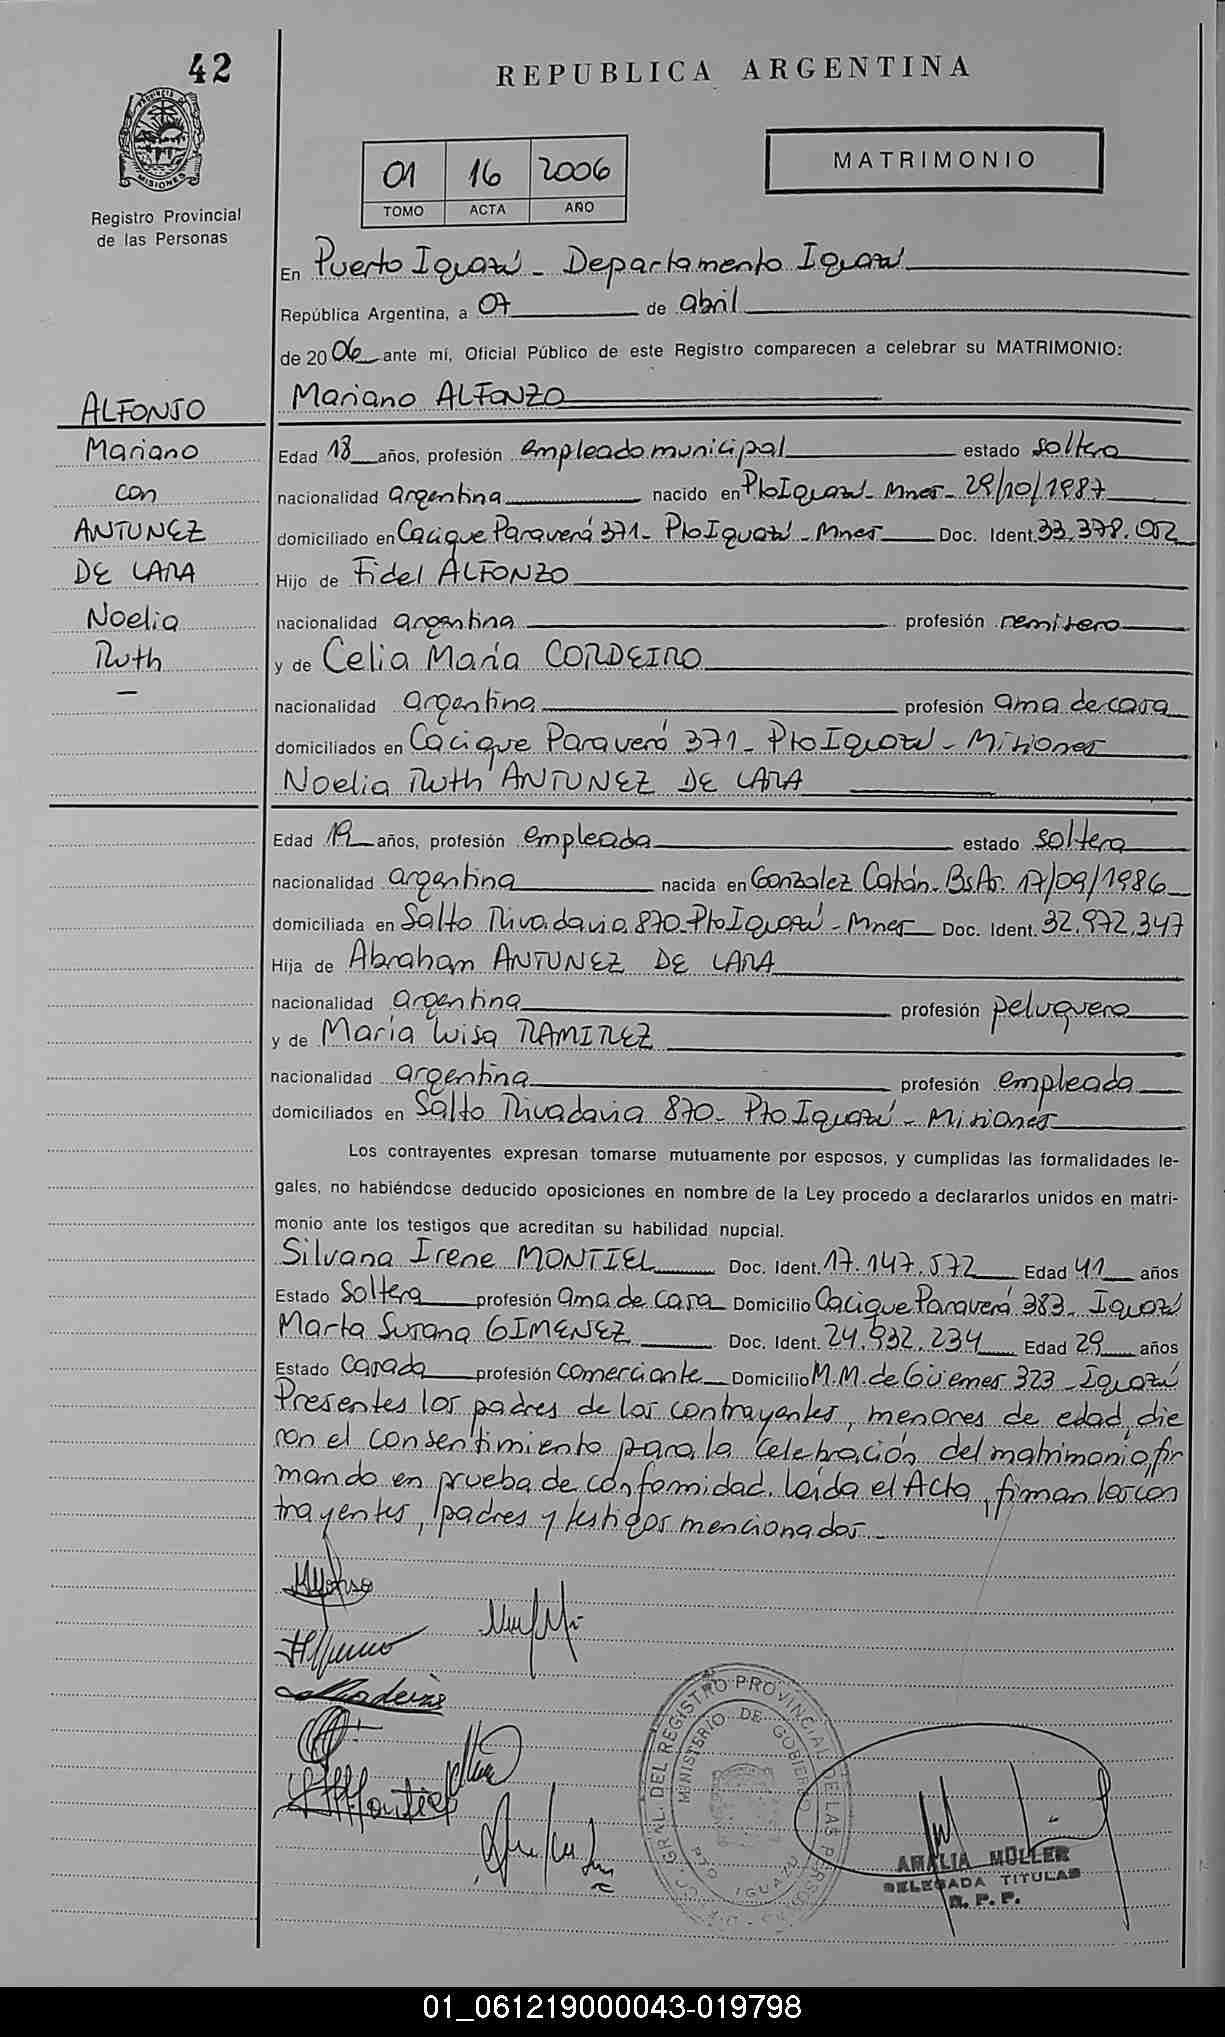 42
REPUBLICA ARGENTINA
PROVINCIA DE
MISIONES
Registro Provincial
de las Personas
01 16 2006
TOMO ACTA AÑO
MATRIMONIO
En Puerto Iguazú - Departamento Iguazú
República Argentina, a 07 de abril
de 2006 ante mí, Oficial Público de este Registro comparecen a celebrar su MATRIMONIO:
Mariano ALFONZO
ALFONSO
Mariano
con
ANTUNEZ
DE LARA
Noelia
Ruth
Edad 18 años, profesión empleado municipal estado soltero
nacionalidad argentina nacido en Pto Iguazú - Mnes - 29/10/1987
domiciliado en Cacique Paraverá 371 - Pto Iguazú - Mnes Doc. Ident. 33.378.052
Hijo de Fidel ALFONZO
nacionalidad argentina profesión remisero
y de Celia María CORDEIRO
nacionalidad argentina profesión ama de casa
domiciliados en Cacique Paraverá 371 - Pto Iguazú - Misiones
Noelia Ruth ANTUNEZ DE LARA
Edad 19 años, profesión empleada estado soltera
nacionalidad argentina nacida en Gonzalez Catán - Bs As. 17/09/1986
domiciliada en Salto Rivadavia 870 - Pto Iguazú - Mnes Doc. Ident. 32.972.347
Hija de Abraham ANTUNEZ DE LARA
nacionalidad argentina profesión peluquero
y de María Luisa RAMIREZ
nacionalidad argentina profesión empleada
domiciliados en Salto Rivadavia 870 - Pto Iguazú - Misiones
Los contrayentes expresan tomarse mutuamente por esposos, y cumplidas las formalidades le-
gales, no habiéndose deducido oposiciones en nombre de la Ley procedo a declararlos unidos en matri-
monio ante los testigos que acreditan su habilidad nupcial.
Silvana Irene MONTIEL Doc. Ident. 17.147.572 Edad 41 años
Estado soltera profesión ama de casa Domicilio Cacique Paraverá 383 - Iguazú
Marta Susana GIMENEZ Doc. Ident. 24.932.234 Edad 29 años
Estado casada profesión comerciante Domicilio M.M. de Güemes 323 - Iguazú
Presentes los padres de los contrayentes, menores de edad, die
ron el consentimiento para la celebración del matrimonio, fir
mando en prueba de conformidad. Leída el Acta, firman los con
trayentes, padres y testigos mencionados.-
GRAL. DEL REGISTRO PROVINCIAL DE LAS PERSONAS
MINISTERIO DE GOBIERNO
PTO IGUAZU
AMALIA MÜLLER
DELEGADA TITULAR
R. P. P.
01_061219000043-019798